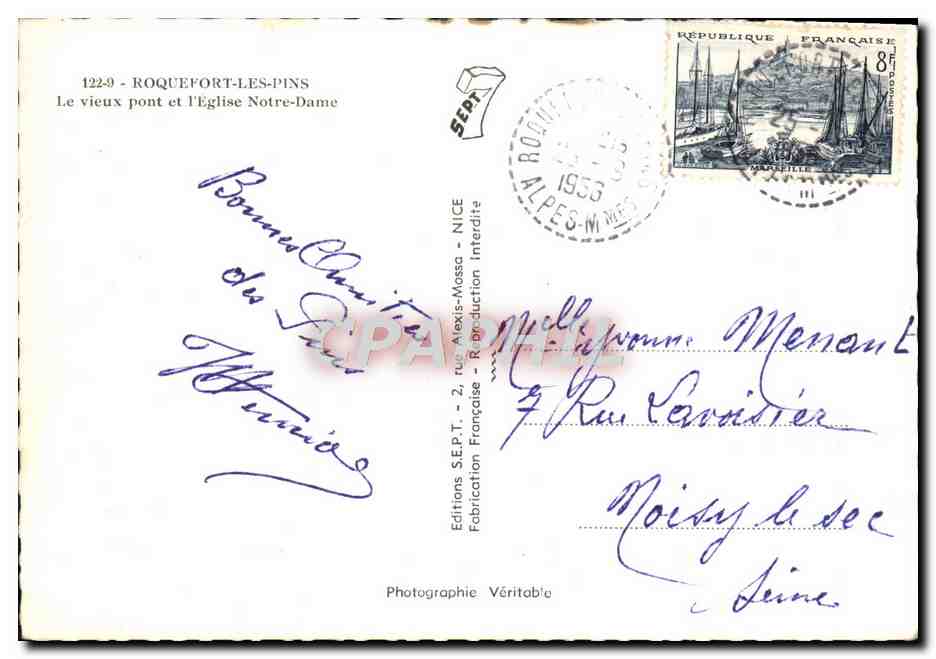 122-9 - ROQUEFORT-LES-PINS
Le vieux pont et l'Eglise Notre-Dame
SEPT
RÉPUBLIQUE FRANÇAISE
8F
POSTES
MARSEILLE
1956
ALPES-Mmes
Bonnes Amitiés
des Pins
Editions S.E.P.T. - 2, rue Alexis-Mossa - NICE
Fabrication Française - Reproduction Interdite
CPAPHIL
Melle Yvonne Menant
7 Rue Lavoisier
Noisy le sec
Seine
Photographie Véritable